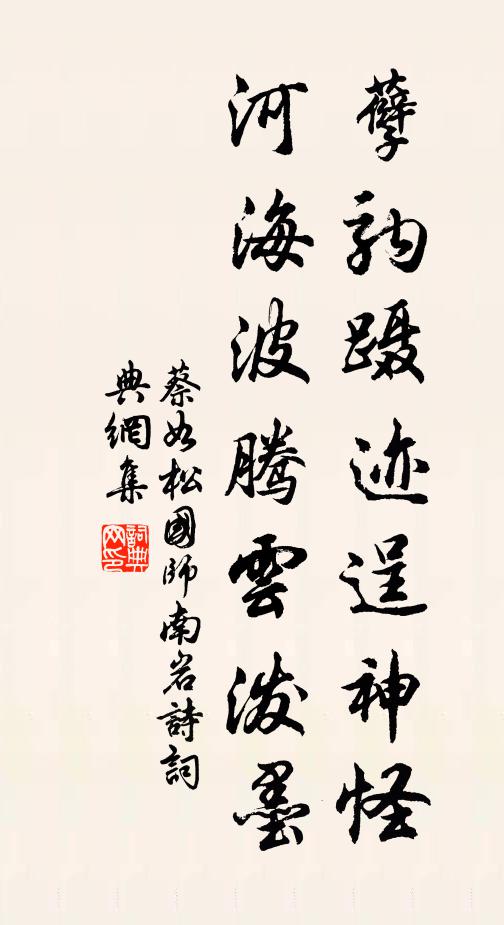 孽豿蹑迹逞神怪
河海波腾雲泼墨
蔡如松國師南岩詩詞
典網集
詞典網印